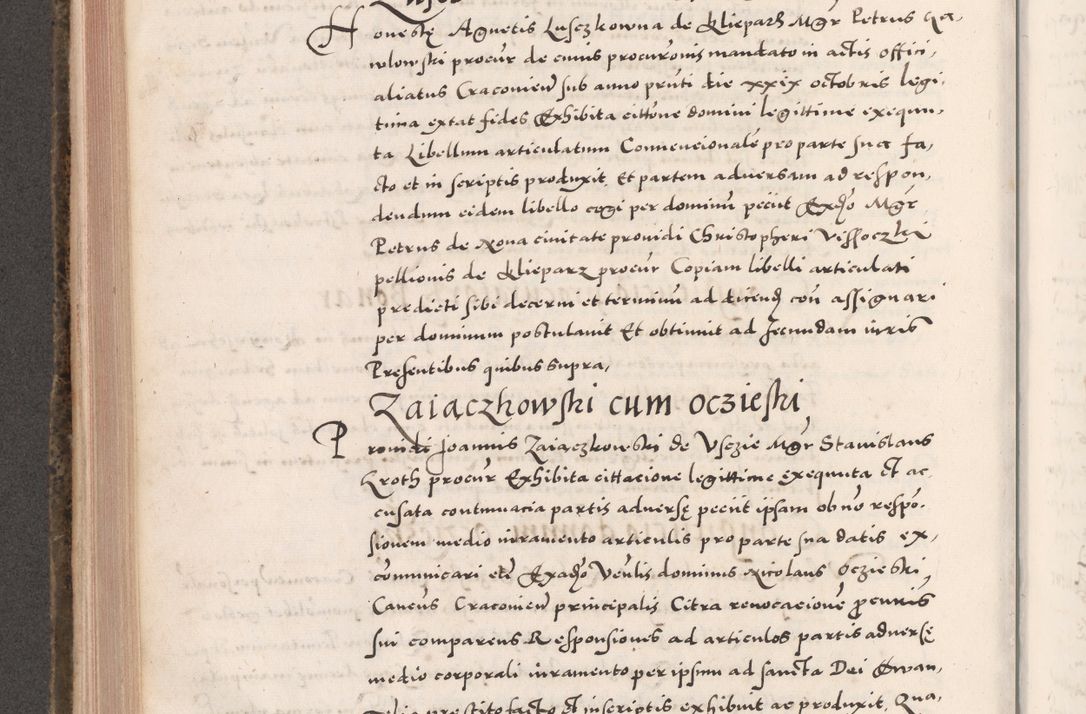 Honestę Agnetis Lusczkowna de Klieparz Mgr Petrus Ga,
wlowski procur de cuius procuronis mandato in actis offici,
aliatus Craconień sub anno pruti die xxix octobris legi,
tima extat fides Exhibita cittone domini legittime exequu,
ta Libellum articulatum Conuencionale pro parte sua fa,
cto et in scriptis produxit. Et partem aduersam ad respon,
dendum eidem libello cogi per dominu peciit Exaduo Mgr
Petrus de Noua ciuitate prouidi Christopheri Vissoczka
pellionis de Klieparz procur Copiam libelli articulati
predicti sibi decerni et terminu ad dicend con assignari
per dominum postulauit Et obtinuit ad secundam iuris
Presentibus quibus supra,
Zaiaczkowski cum oczieski
Prouidi Joannis Zaiączkowski de Vsczie Mgr Stanislaus
Kroth procur Exhibita cittacione legittime exequuta Et ac,
cusata contumacia partis aduersę peciit ipsam ob no respo,
sionem medio iuramento articulis pro parte sua datis ex,
comunicari etc Exaduo Venlis dominus Nicolaus oczieski
Cancus Craconień principalis Citra reuocacione procuris
sui comparens Responsiones ad articulos partis aduersę
medio corporali iuramento per ipsum ad sancta Dei Ewan,
gelia prestito facto Et in scriptis exhibuit ac produxit. Qua,